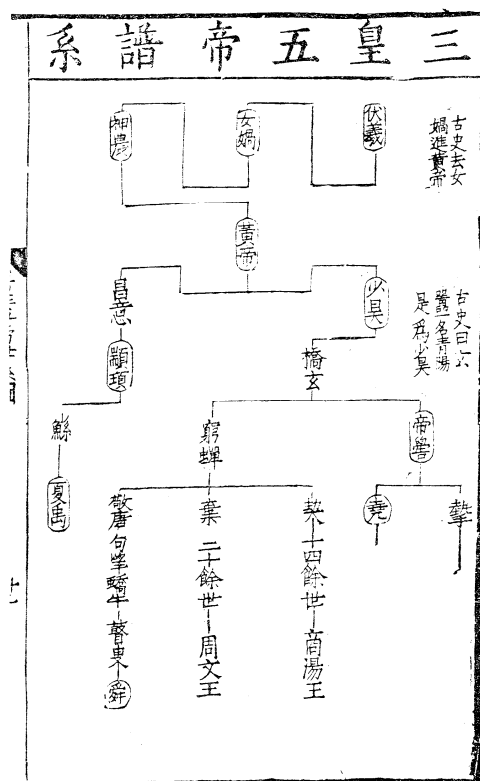 三皇五帝譜系
古史去女
媧進黃帝
伏羲
女媧
神農
黃帝
古史曰玄
囂一名青陽
是為少昊
少昊
昌意
顓頊
橋玄
鯀
夏禹
帝嚳
窮蟬
摯
堯
契十四餘世商湯王
棄二十餘世周文王
敬唐句望蟜牛瞽叟舜